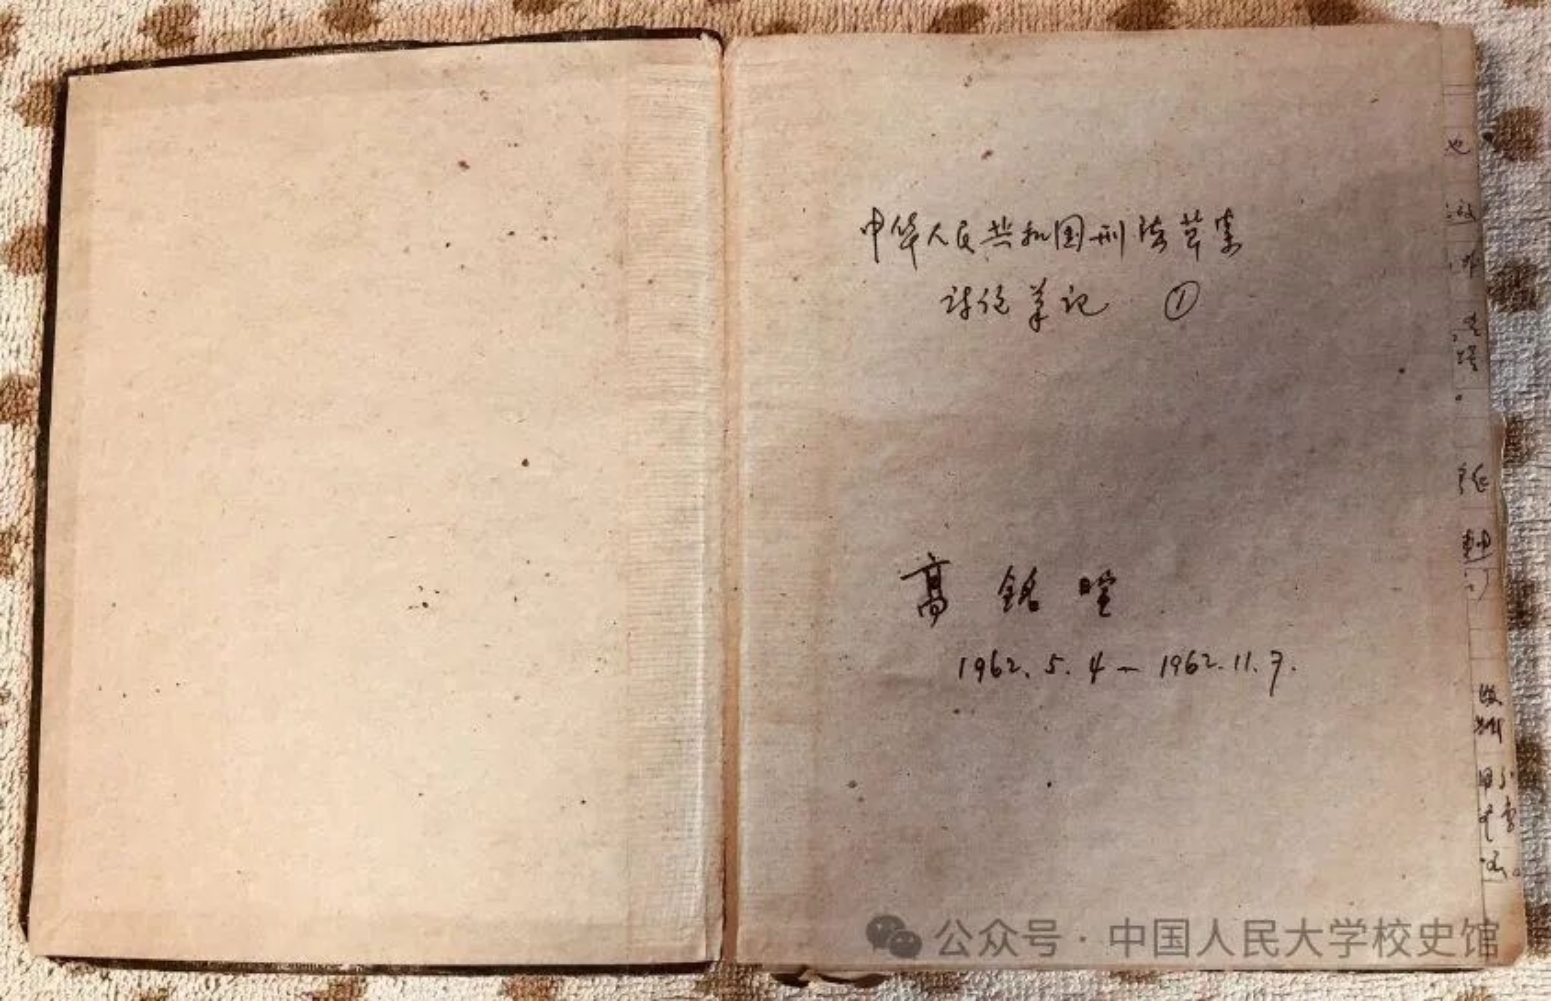 中华人民共和国刑法草案
讨论笔记 ①
高 铭 暄
1962.5.4—1962.11.7.
也
公众号·中国人民大学校史馆